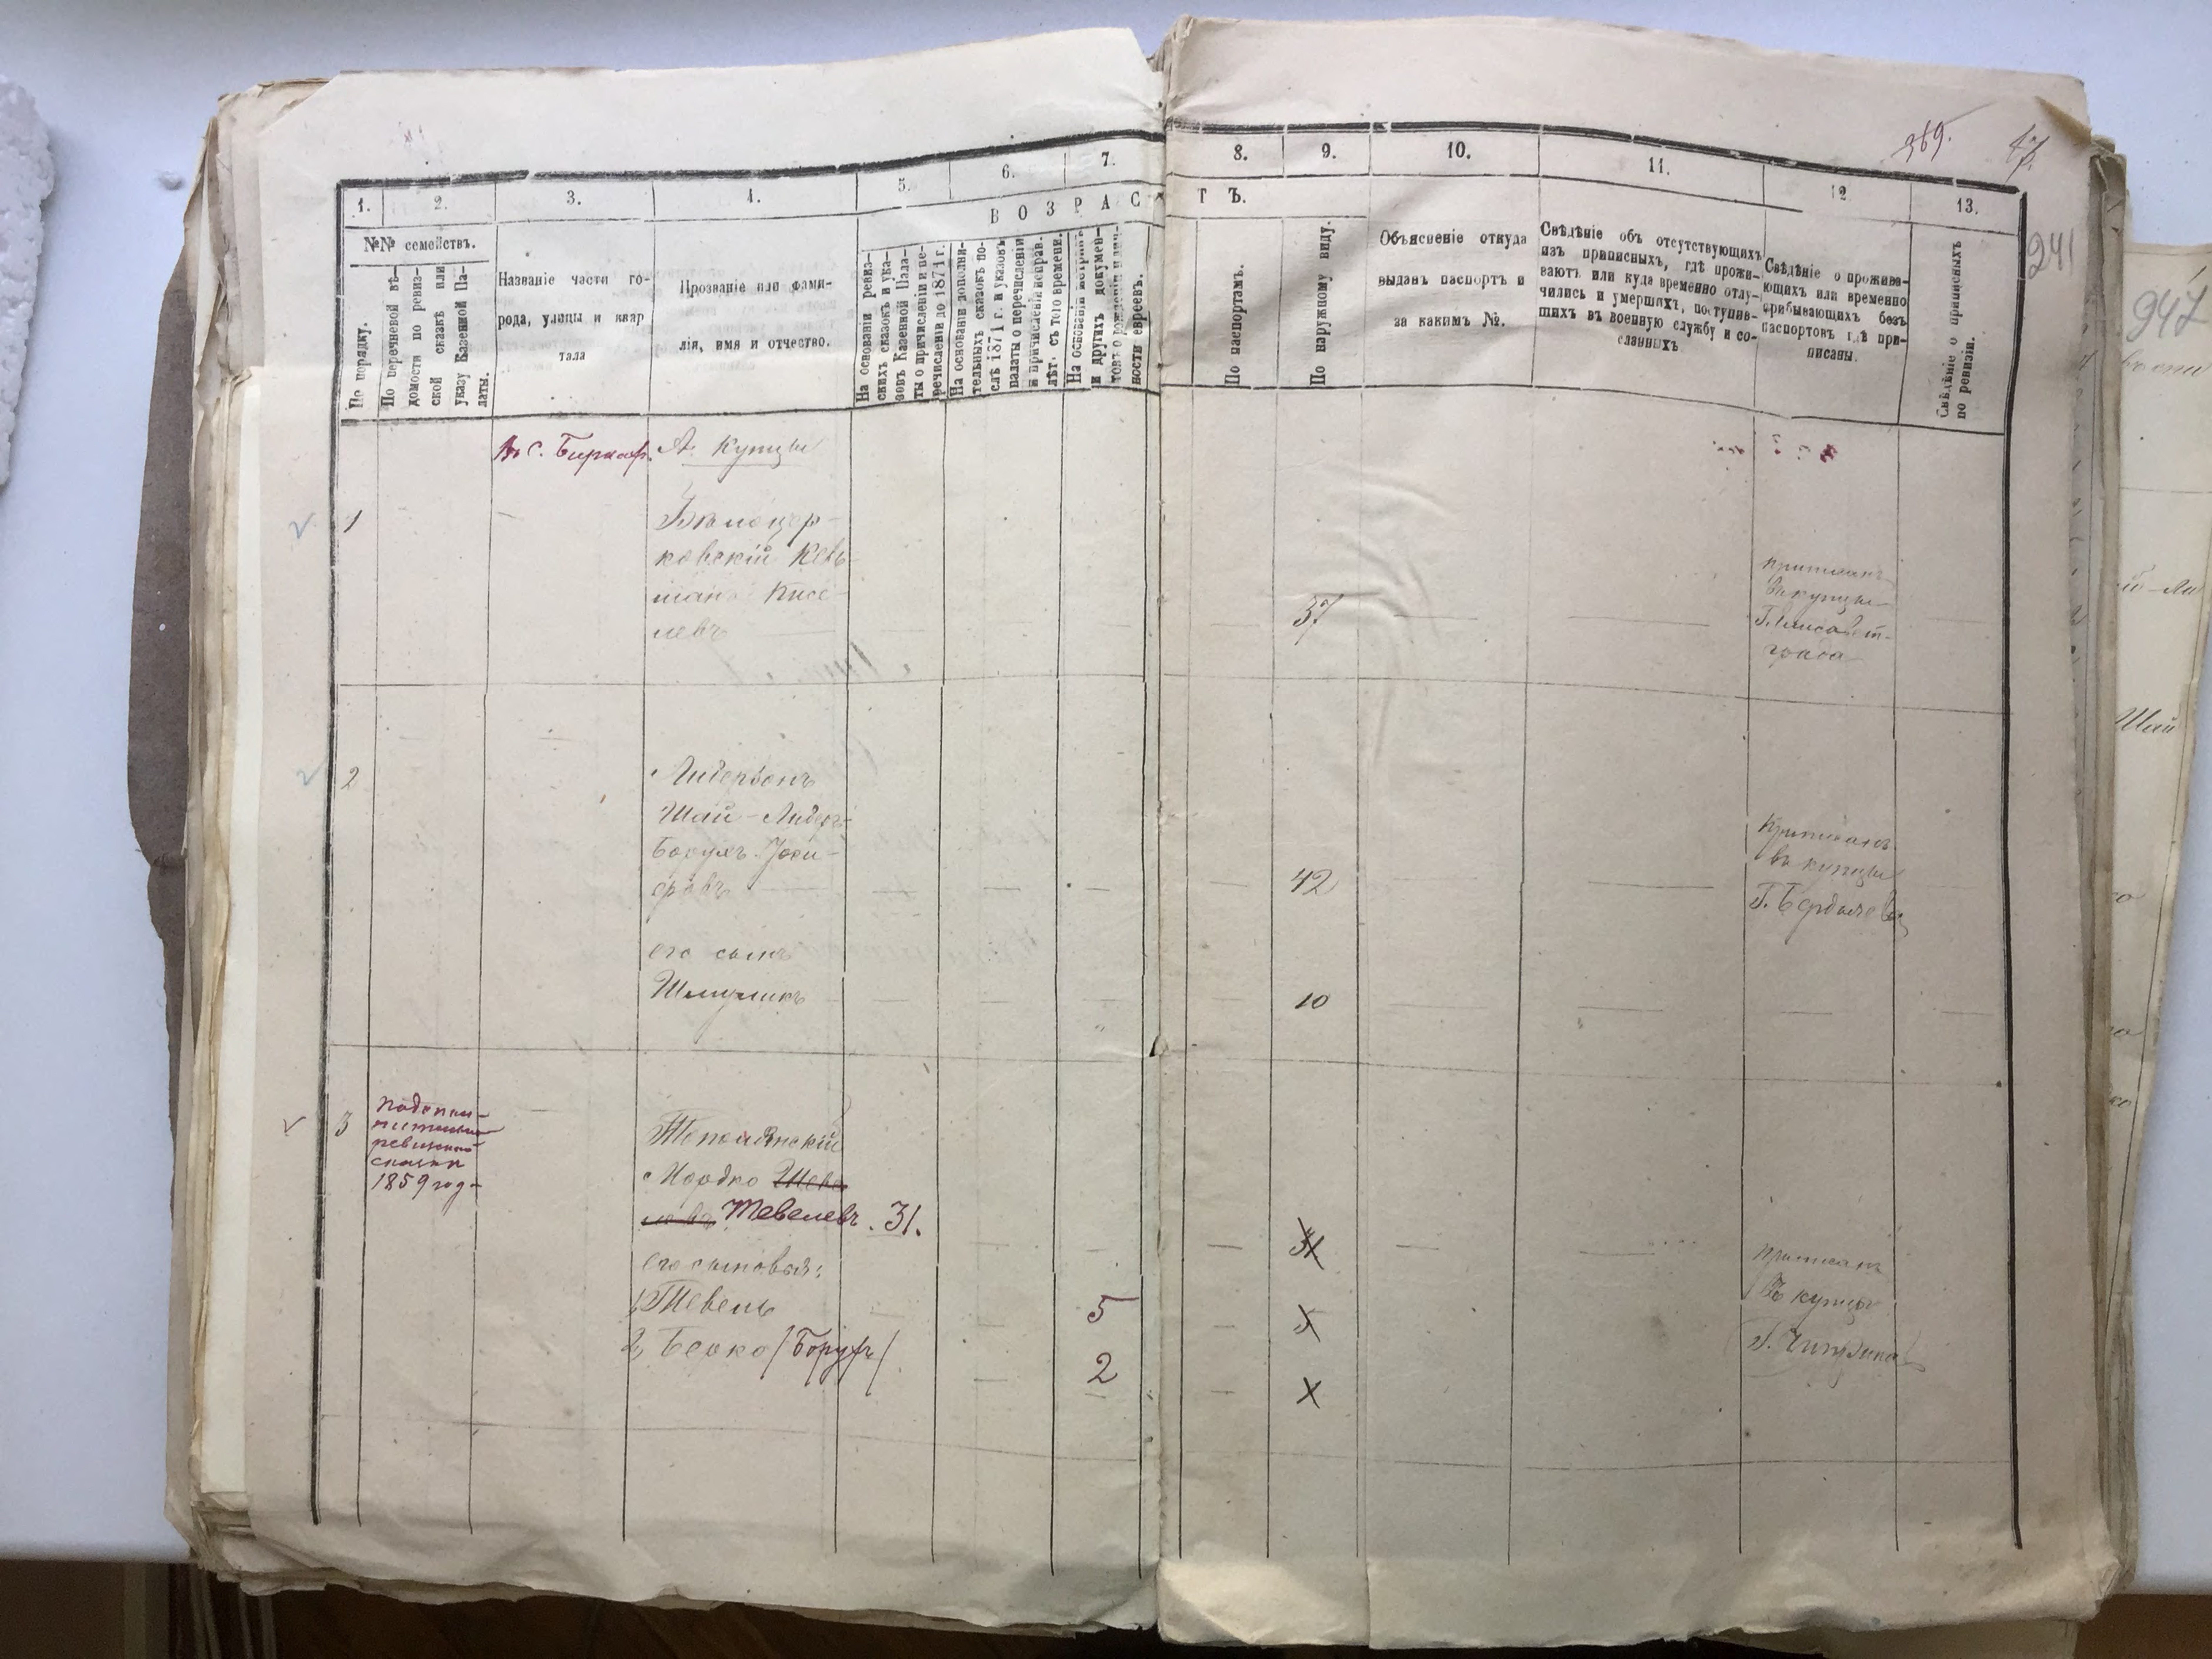 369.
47
241
947
1.
2.
3.
4.
5.
6.
7.
8.
9.
10.
11.
12
13.
№№ семействъ.
В О З Р А С Т Ъ.
По порядку.
По перечневой вѣ-
домости по ревиз-
ской сказкѣ или
указу Казенной Па-
латы.
Названіе части го-
рода, улицы и квар
тала
Прозваніе или фами-
лія, имя и отчество.
На основаніи ревиз-
скихъ сказокъ и ука-
зовъ Казенной Пала-
ты о причисленіи и пе-
речисленіи до 1871 г.
На основаніи дополни-
тельныхъ сказокъ по-
слѣ 1871 г. и указовъ
палаты о перечисленіи
и причисленіи исправ.
лѣт. съ того времени.
На основаніи метрикъ
и другихъ докумен-
товъ о рожденіи и лич-
ности евреевъ.
По паспортамъ.
По наружному виду.
Объясненіе откуда
выданъ паспортъ и
за какимъ №.
Свѣдѣніе объ отсутствующихъ
изъ приписныхъ, гдѣ прожи-
ваютъ или куда временно отлу-
чились и умершихъ, поступив-
шихъ въ военную службу и со-
сланныхъ
Свѣдѣніе о прожива-
ющихъ или временно
прибывающихъ безъ
паспортовъ гдѣ при-
писаны.
Свѣдѣніе о приписныхъ
по ревизіи.
А. Купцы
1
Бѣлоцер-
ковскій Кель-
манъ Кисе-
левъ
37
приписанъ
въ купцы
Г. Елисавет-
града
2
Шай-Лидер-
его сынъ
Шмуликъ
42
10
Приписанъ
въ купцы
Г. Бердичева
3
ревизской
сказки
1859 год-
Тополянскій
Мордко Шеве
левъ Тевелевъ. 31.
его сыновья:
1, Тевель
5
2, Берко /Борухъ/
2
приписанъ
Въ купцы
Г. Чигирина
Шай